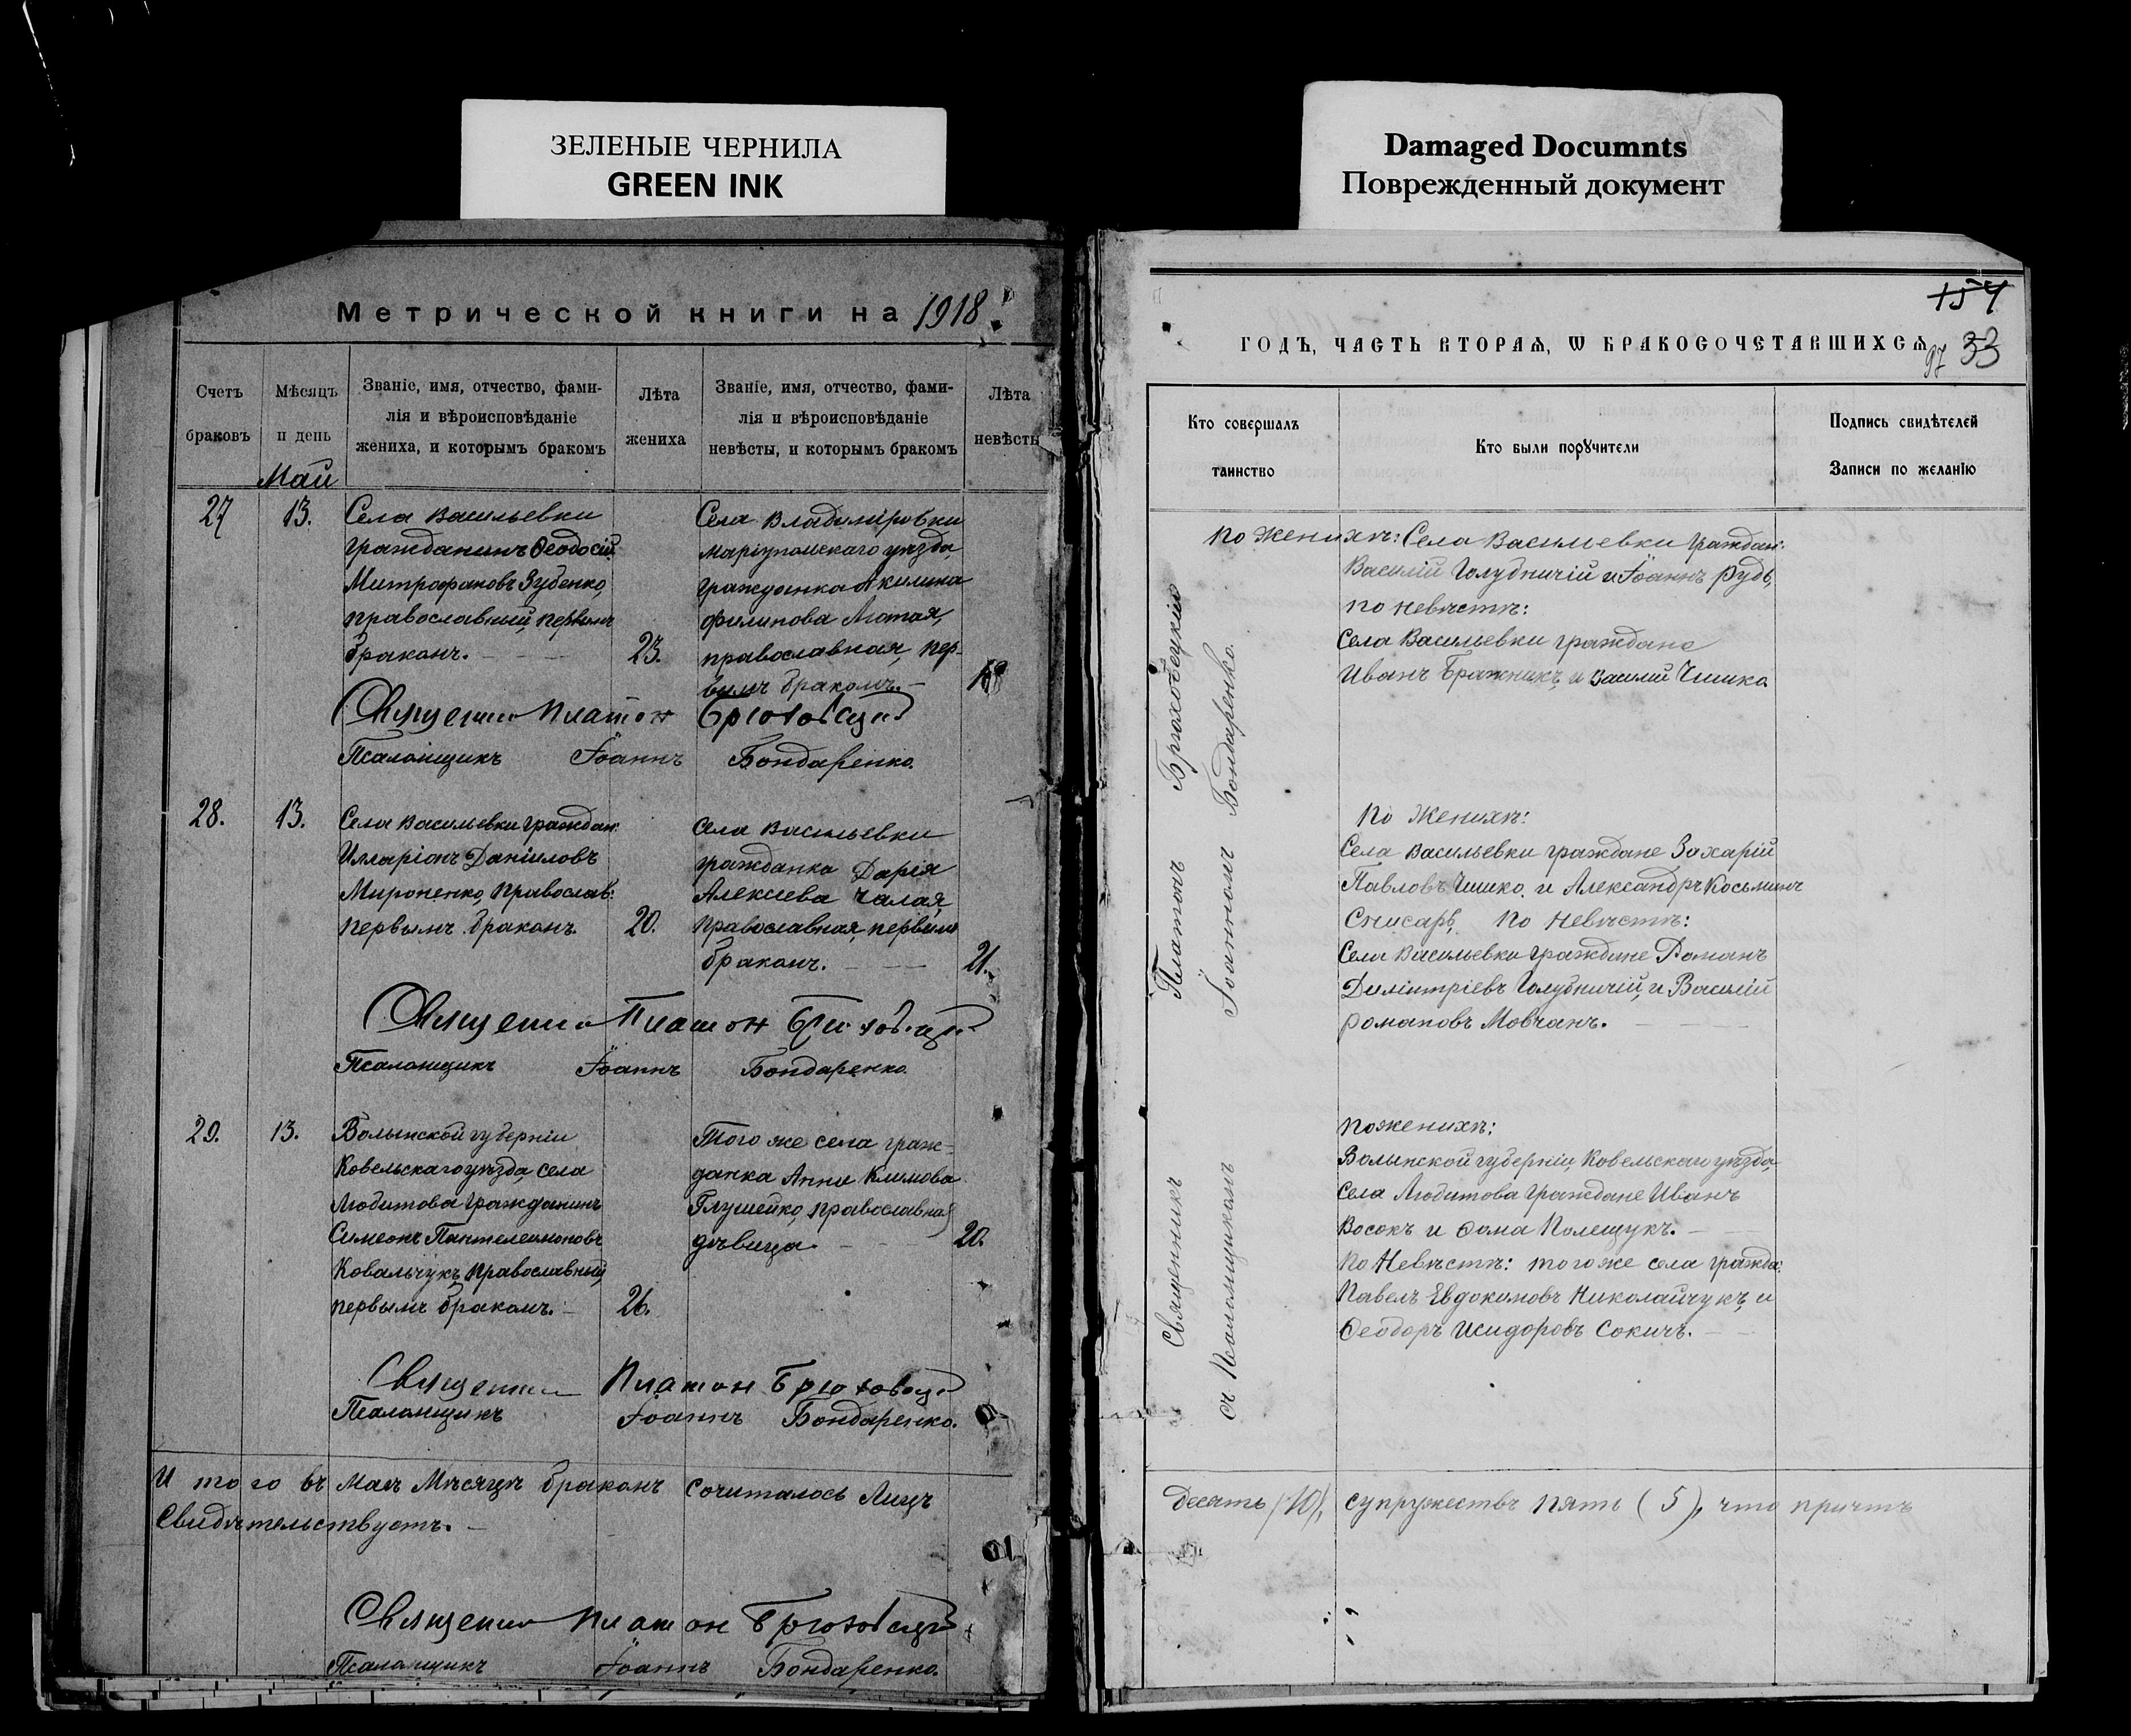 ЗЕЛЕНЫЕ ЧЕРНИЛА
GREEN INK
Damaged Documnts
Поврежденный документ
Метрической книги на 1918 г.
Счетъ браковъ
Мѣсяцъ и день
Званіе, имя, отчество, фами-
лія и вѣроисповѣданіе
жениха, и которымъ бракомъ
Лѣта жениха
Званіе, имя, отчество, фами-
лія и вѣроисповѣданіе
невѣсты, и которымъ бракомъ
Лѣта невѣсты
Май
27
13.
Села Васильевки
гражданинъ Ѳеодосій
Митрофановъ Зубенко,
православный, первымъ
бракомъ.
23.
Села Владиміровки
Маріупольскаго уѣзда,
гражданка Акилина
Филипова Лютая,
православная, пер-
вымъ бракомъ.
18
Священникъ Платон Брюховецкій
Псаломщикъ Іоаннъ Бондаренко.
28.
13.
Села Васильевки граждан.
Илларіонъ Даніиловъ
Мироненко, православ.
первымъ бракомъ.
20.
Села Васильевки
гражданка Дарія
Алексіева Чалая,
православная, первымъ
бракомъ.
21.
Священникъ Платон Брюховецкій
Псаломщикъ Іоаннъ Бондаренко.
29.
13.
Волынской губерніи
Ковельскаго уѣзда, села
Любитова гражданинъ
Симеонъ Пантелеимоновъ
Ковальчукъ, православный,
первымъ бракомъ.
26.
Того же села граж-
данка Анна Климова
Глушейко, православная,
дѣвица.
20.
Священникъ Платон Брюховецкій
Псаломщикъ Іоаннъ Бондаренко.
И того въ маѣ мѣсяцѣ бракомъ сочиталось лицъ
свидѣтельствуетъ.
Священникъ Платон Брюховецкій
Псаломщикъ Іоаннъ Бондаренко.
154
97 33
ГОДЪ, ЧАСТЬ ВТОРАѦ, Ѡ БРАКОСОЧЕТАВШИХСѦ
Кто совершалъ таинство
Кто были порꙋчители
Подпись свидѣтелей
Записи по желанію
Священникъ Платонъ Брюховецкій
съ Псаломщикомъ Іоанномъ Бондаренко.
По женихѣ: Села Васильевки граждан.
Василій Голубничій и Іоаннъ Рудь,
по невѣстѣ:
Села Васильевки граждане
Иванъ Бражникъ, и Василій Чишко
По женихѣ:
Села Васильевки граждане Захарій
Павловъ Чишко, и Александръ Косьминъ
Снисарь, по невѣстѣ:
Села Васильевки граждане Романъ
Димитріевъ Голубничій, и Василій
Романовъ Мовчанъ.
По женихѣ:
Волынской губерніи, Ковельскаго уѣзда,
села Любитова граждане Иванъ
Восокъ и Ѳома Полещукъ.
По невѣстѣ: того же села гражда.
Павелъ Евдокимовъ Николайчукъ, и
Ѳеодоръ Исидоровъ Сокичъ.
десять (10), супружествъ пять (5), что причтъ